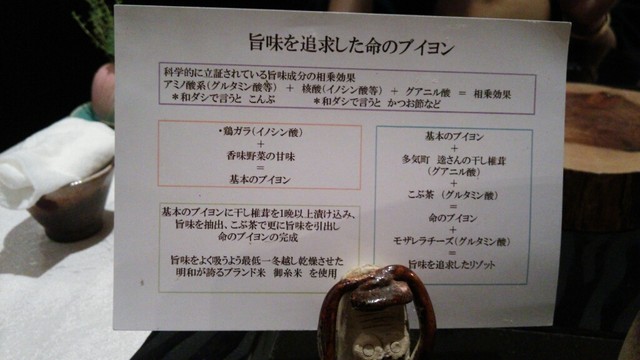 旨味を追求した命のブイヨン
科学的に立証されている旨味成分の相乗効果
アミノ酸系(グルタミン酸等) + 核酸(イノシン酸等) + グアニル酸 = 相乗効果
*和ダシで言うと こんぶ *和ダシで言うと かつお節など
・鶏ガラ(イノシン酸)
+
香味野菜の甘味
=
基本のブイヨン
基本のブイヨンに干し椎茸を1晩以上漬け込み、
旨味を抽出、こぶ茶で更に旨味を引出し
命のブイヨンの完成
旨味をよく吸うよう最低一冬越し乾燥させた
明和が誇るブランド米 御糸米 を使用
基本のブイヨン
+
多気町 逵さんの干し椎茸
(グアニル酸)
+
こぶ茶 (グルタミン酸)
=
命のブイヨン
+
モザレラチーズ(グルタミン酸)
=
旨味を追求したリゾット